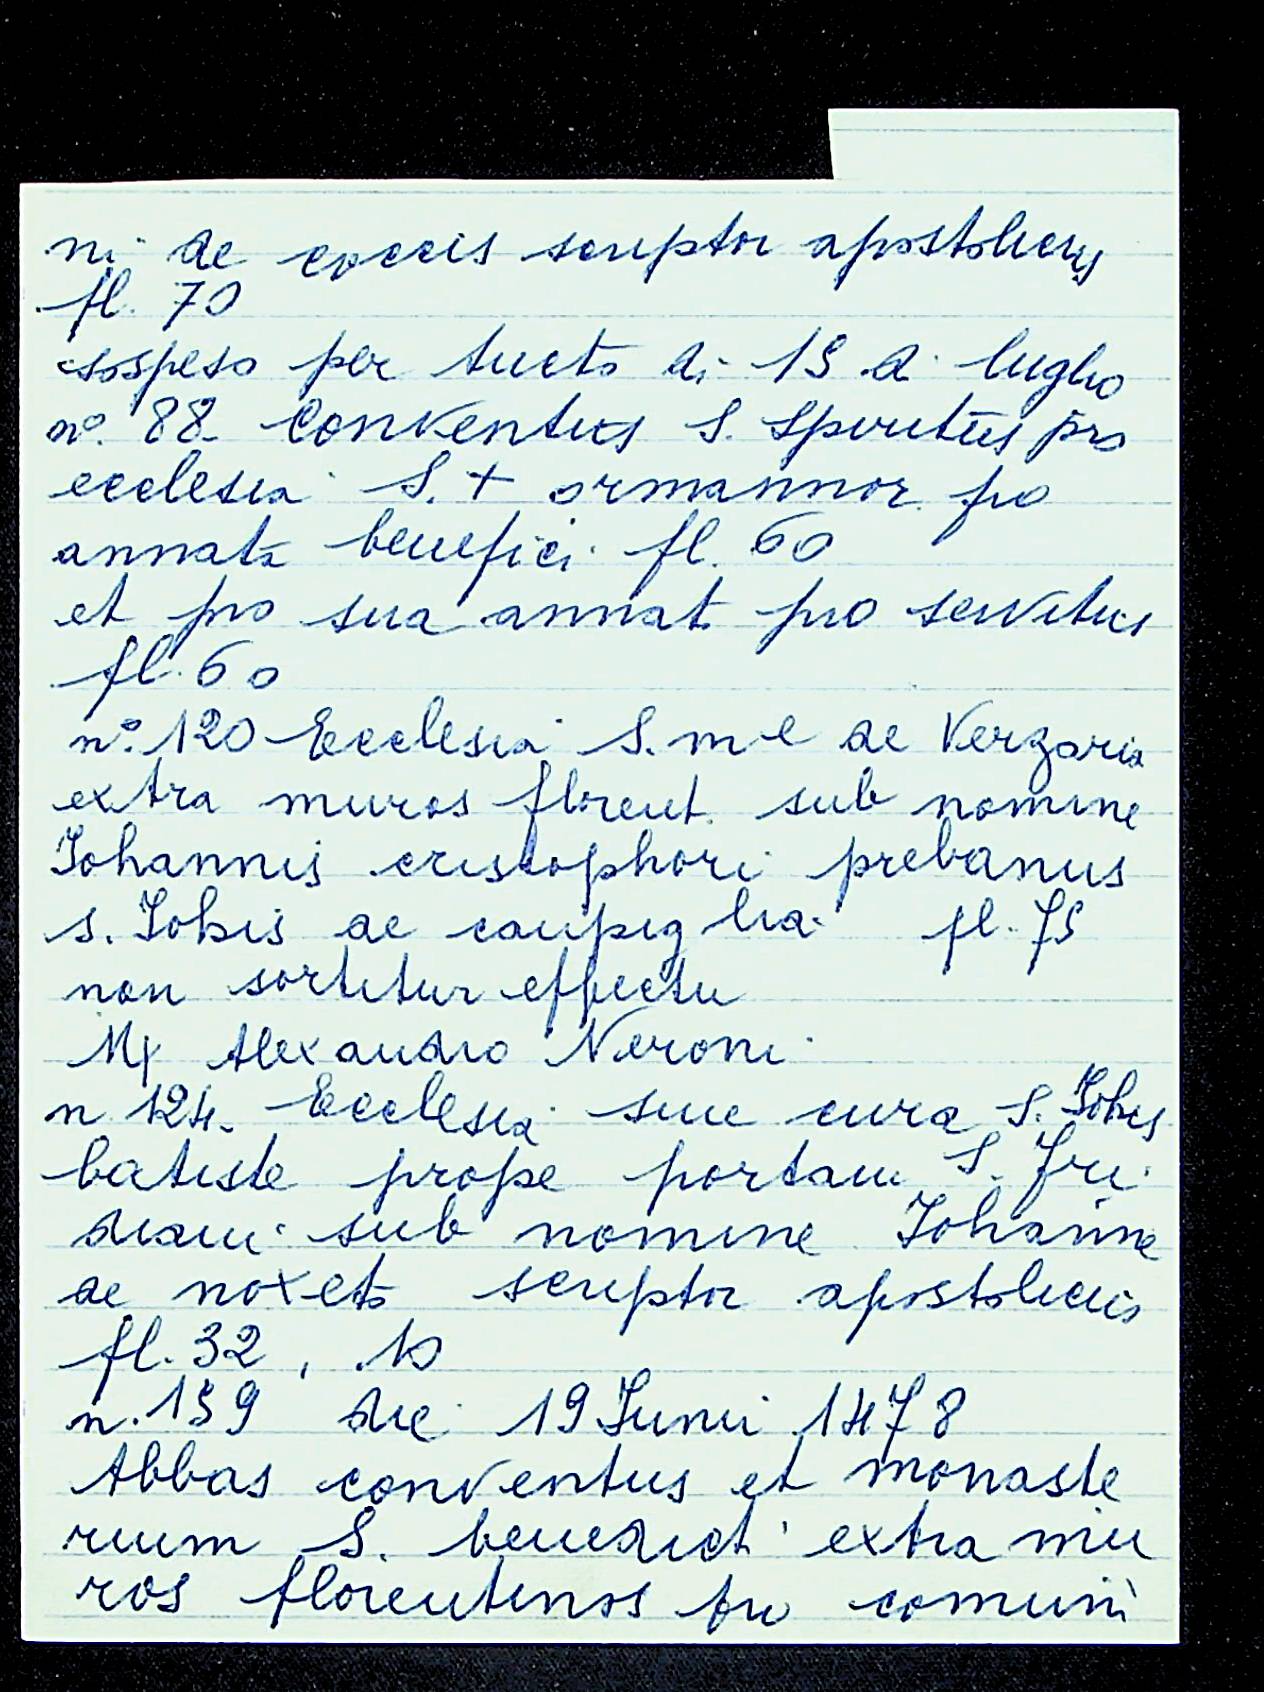 ni de coccis scriptor apostolicus
fl. 70
sospeso per tucto di 15 di luglio
n° 88 Conventus S. Spiritus pro
ecclesia S. + ormannor pro
annata benefici fl. 60
et pro sua annat pro servitus
fl. 60
n° 120 Ecclesia S. m e de Verzaria
extra muros florent. sub nomine
Johannis cristophori prebanus
s. Johis de campiglia fl. 75
non sortitur effectu
Mx Alexandro Neroni
n 124. Ecclesia sine cura S. Johis
batiste prope portam S. Fri
diani sub nomine Johanne
de noxeto scriptor apostolicus
fl. 32, 10
n. 159 die 19 Junii 1478
Abbas conventus et monaste
rium S. benedicti extra mu
ros florentinos pro comuni